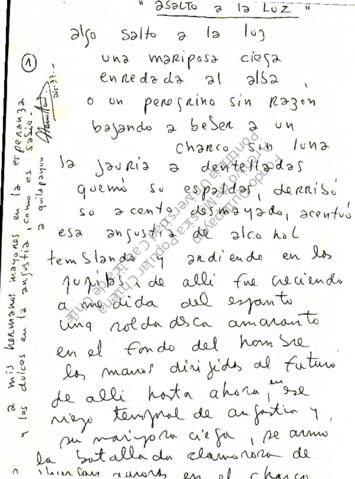 "ASALTO A LA LUZ"
algo salto a la luz
una mariposa ciega
enredada al alba
o un peregrino sin razón
bajando a beber a un
charco sin luna
la jauría a dentelladas
quemó su espaldas, derribó
su acento desmayado, acentuó
esa angustia de alcohol
temblando y ardiendo en las
pupilas; de alli fue creciendo
a medida del espanto
una roldadisca amaranto
en el fondo del hombre
las manos dirigidas al futuro
de alli hasta ahora, en ese
riego temporal de angustia y
su mariposa ciega, se armo
la batallada clamorosa de
en el charco
1
a mis hermanos mayores en la esperanza
y los dulces en la angustia, como es sabio.
a quilapayun
Popular